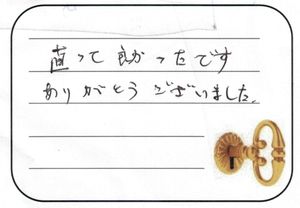 直って良かったです
ありがとうございました。